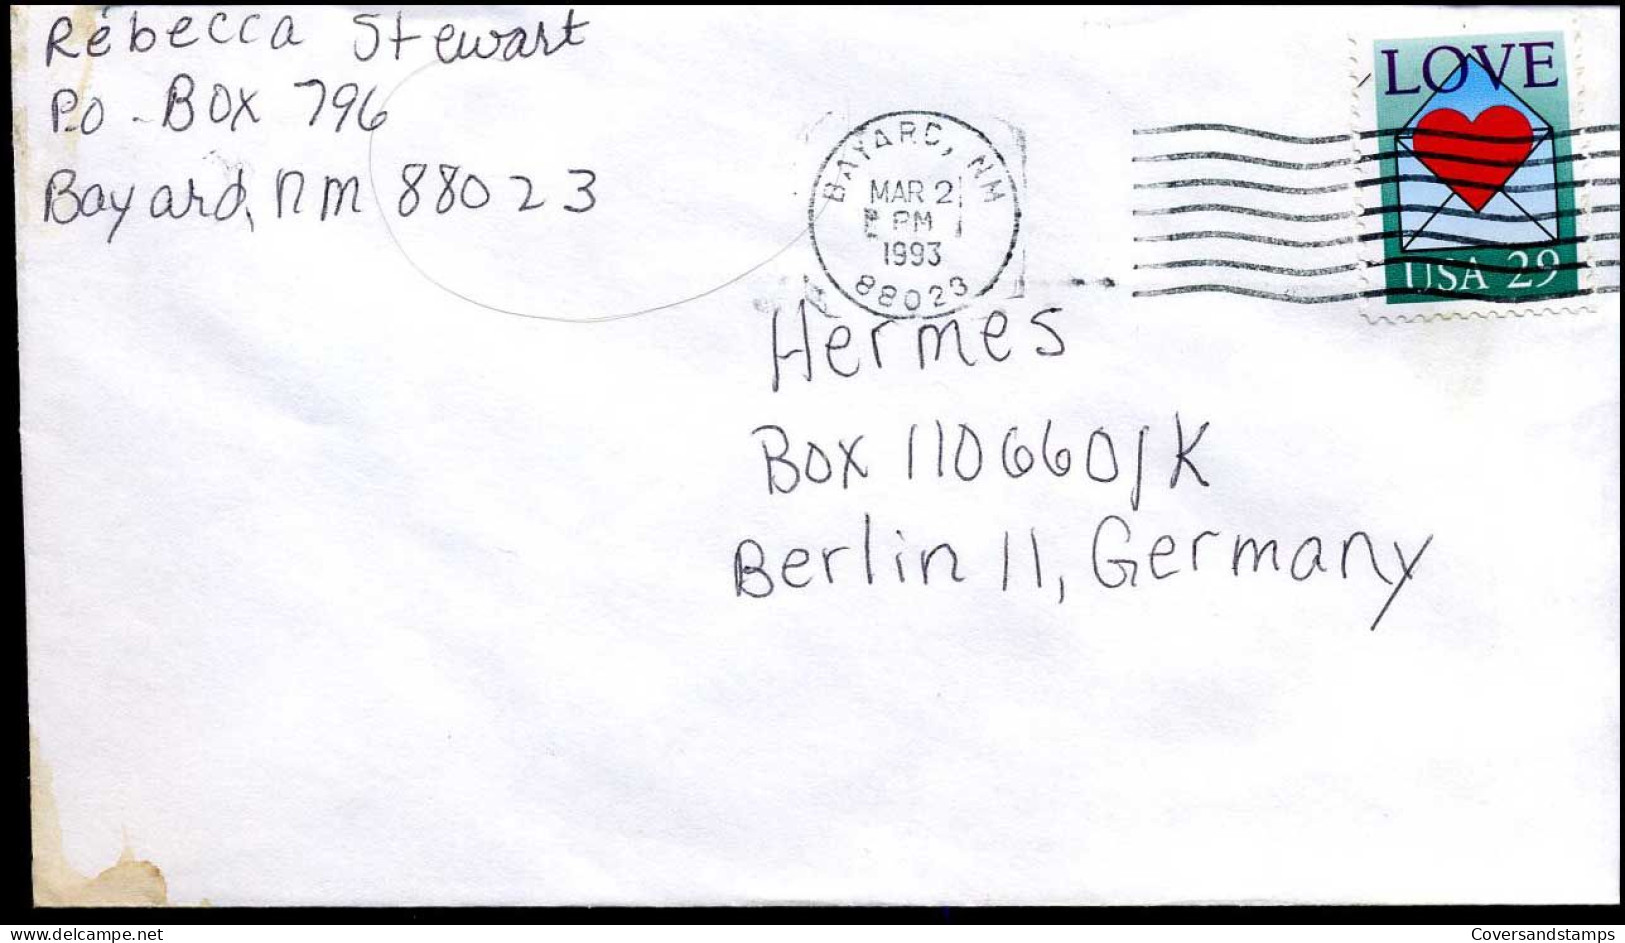 Rebecca Stewart
P.O - BOX 796
Bayard, nm 88023
LOVE
USA 29
BAYARD, NM
MAR 2
PM
1993
88023
Hermes
Box 110660/K
Berlin 11, Germany
www.delcampe.net
Coversandstamps